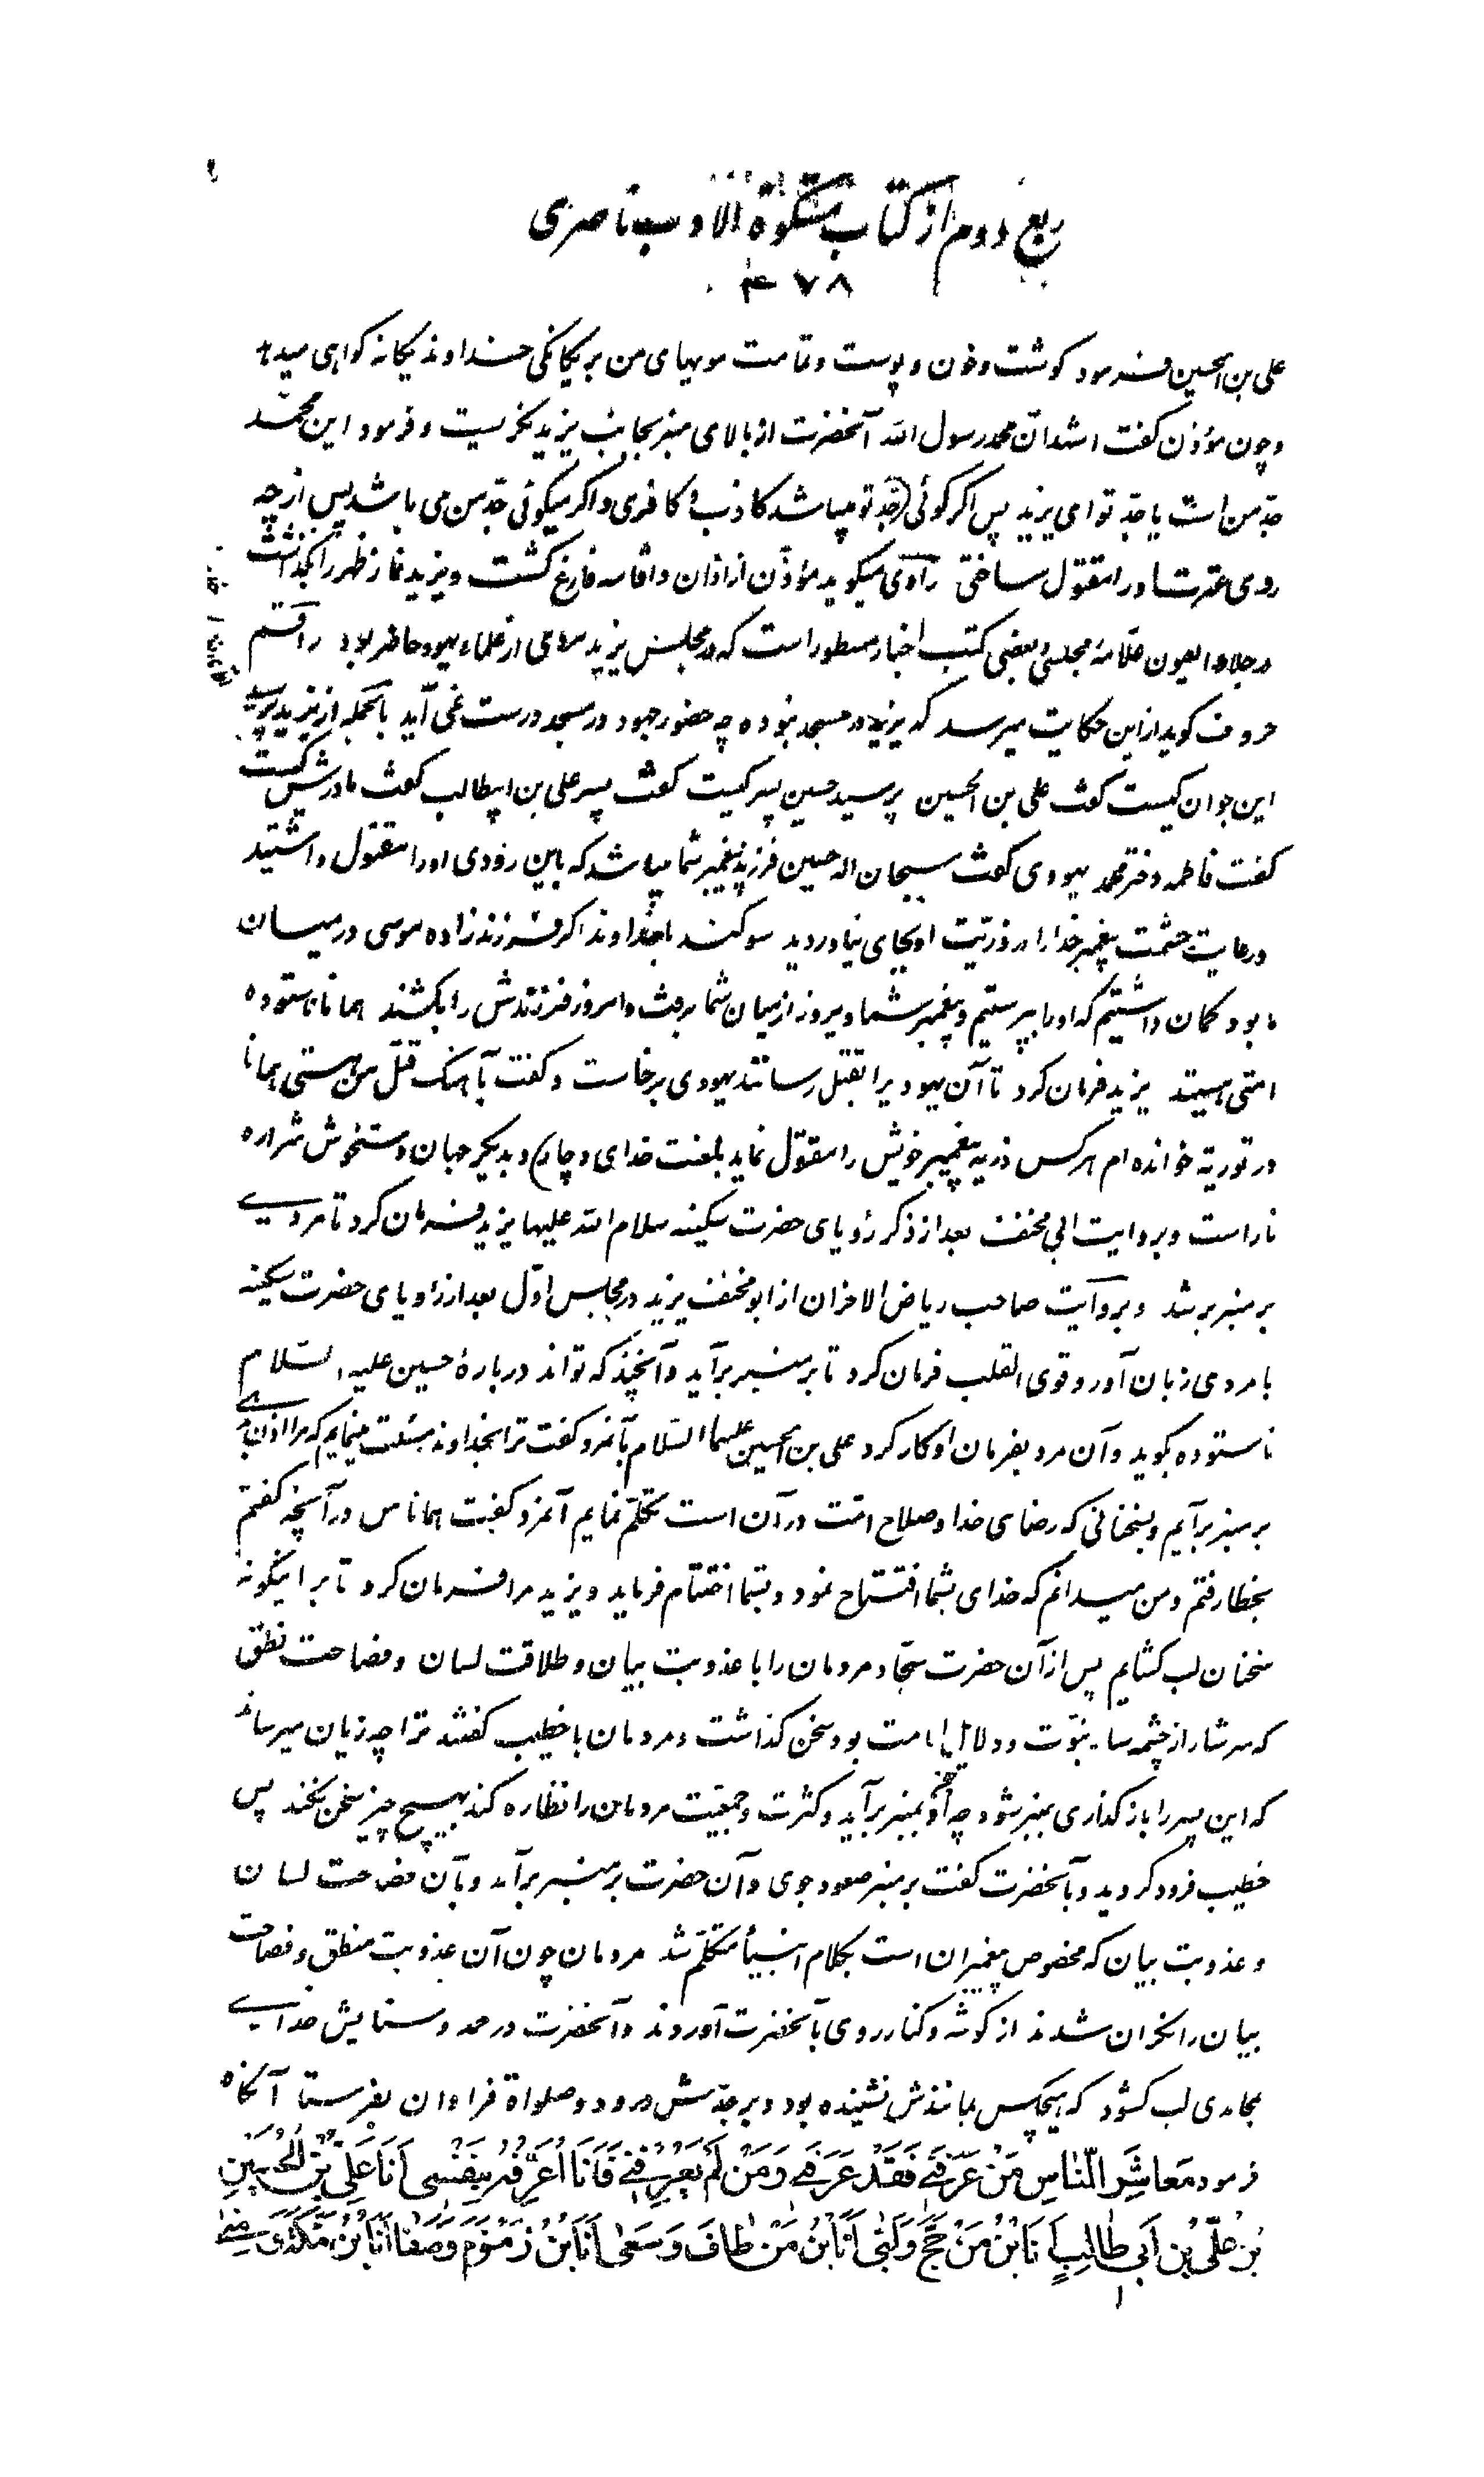 ربع دوم از کتاب مشکوة الادب ناصری
۴۷۸
علی بن الحسین فرمود کوشت و خون و پوست و تمامت مویهای من بریکانکی خداوند یکانه کواهی میدهد
و چون مؤذن کفت اشهد انّ محمد رسول الله آنحضرت از بالای منبر بجانب یزید نکریست و فرمود این محمّد
جدّ من است یا جدّ تو ای یزید پس اکر کوئی جدّ تو میباشد کاذب و کافری و اکر میکوئی جدّ من می باشد پس از چه
روی عترت او را مقتول ساختی راوی میکوید مؤذّن از اذان و اقامه فارغ کشت و یزید نماز ظهر را بکذاشت
در جلاء العیون علامهٔ مجلسی و بعضی کتب اخبار مسطور است که در مجلس یزید مردی از علماء یهود حاضر بود راقم
حروف کوید از این حکایت میرسد که یزید در مسجد نبوده چه حضور جهود در مسجد درست نمی آید بالجمله از یزید پرسید
این جوان کیست کفت علی بن الحسین پرسید حسین پسر کیست کفت پسر علی بن ابیطالب کفت مادرش کیست
کفت فاطمه دختر محمد یهودی کفت سبحان اله حسین فرزند پیغمبر شما میباشد که باین زودی او را مقتول داشتید
و رعایت حشمت پیغمبر خدا را در ذرّیت او بجای نیاوردید سوکند با خداوند اکر فرزندزاده موسی در میان
ما بود کمان داشتیم که او را بپرستیم و پیغمبر شما دیروز از میان شما برفت و امروز فرزندش را بکشتند همانا ناستوده
امتی هستید یزید فرمان کرد تا آن یهود را بقتل رسانند یهودی برخاست و کفت بآهنک قتل من هستی همانا
در توریة خوانده ام هر کس ذریه پیغمبر خویش را مقتول نماید بلعنت خدای دچار و بدیکر جهان دستخوش شراره
نار است و بروایت ابی مخنف بعد از ذکر رؤیای حضرت سکینه سلام الله علیها یزید فرمان کرد تا مردی
بر منبر بر شد و بروایت صاحب ریاض الاحزان از ابو مخنف یزید در مجلس اوّل بعد از رؤیای حضرت سکینه
با مردی زبان آور و قوی القلب فرمان کرد تا بر منبر بر آید و آنچیز که تواند دربارهٔ حسین علیه السّلام
ناستوده بکوید و آن مرد بفرمان او کار کرد علی بن الحسین علیهما السّلام بآنمرد کفت ترا بخداوند مسئلت مینمایم که مرا اذن دهی
بر منبر بر آیم و بسخنانی که رضای خدا و صلاح امّت در آن است تکلّم نمایم آنمرد کفت همانا من در آنچه کفتم
بخطا رفتم و من میدانم که خدای بشما افتتاح نمود و بشما اختتام فرماید و یزید مرا فرمان کرد تا بر اینکونه
سخنان لب کشایم پس از آن حضرت سجّاد مردمان را با عذوبت بیان و طلاقت لسان و فصاحت نطق
که سرشار از چشمه سار نبوّت و دلایل امامت بود سخن کذاشت و مردمان با خطیب کفتند ترا چه زیان میرساند
که این پسر را باز کذاری بمنبر شود چه او بمنبر بر آید و کثرت و جمعیّت مردمان را نظاره کند بهیچ چیز سخن نکند پس
خطیب فرود کردید و بآنحضرت کفت بر منبر صعود جوی و آن حضرت بر منبر برآمد و بآن فصاحت لسان
و عذوبت بیان که مخصوص پیغمبران است بکلام انبیأ متکلّم شد مردمان چون آن عذوبت منطق و فصاحت
بیان را نکران شدند از کوشه و کنار روی بآنحضرت آوردند و آنحضرت در حمد و ستایش خدای
بمحامدی لب کشود که هیچکس بمانندش نشنیده بود و بر جدّش درود و صلواة فراوان بفرستاد آنکاه
فرمود مَعاشِرَ النّاسِ مَنْ عَرَفَنی فَقَدْ عَرَفَنی وَمَنْ لَمْ یَعْرِفْنی فَاَنَا اُعَرِّفُهُ بِنَفْسی اَنَا عَلِیُّ بْنُ الْحُسَیْنِ
بْنِ عَلِّی بْنِ اَبی طالِبٍ اَنَا بْنُ مَنْ حَجَّ وَ لَبّی اَنَا بْنُ مَنْ طافَ وَ سَعی اَنَا بْنُ زَمْزَمَ وَ صَفا اَنَا بْنُ مَکَّةَ وَ مِنی